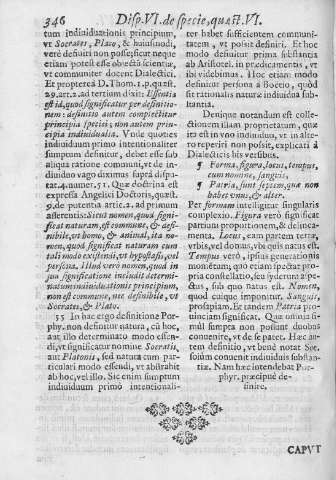 346 Disp.VI. de specie, quæst.VI.
tum indiuiduationis principium,
vt Socrates, Plato, & huiusmodi,
verè definiri non posse, sicut neque
etiam potest esse obiectũ scientiæ,
vt communiter docent Dialectici.
Et propterea D. Thom. 1. p. quæst.
29. art. 2. ad tertium dixit: Essentia
est id, quod significatur per definitio-
nem: definitio autem complectitur
principia speciei; non autem prin-
cipia indiuidualia. Vnde quoties
indiuiduum primo intentionaliter
sumptum definitur, debet esse sub
aliqua ratione communi, vt de in-
diuiduo vago diximus suprà dispu
tat. 4. numer. 51. Quæ doctrina est
expressa Angelici Doctoris, quæst.
9. de potentia artic. 2. ad primum
asserentis: Sicut nomen, quod signi-
ficat naturam, est commune, & defi-
nibile, vt homo, & animal, ita no-
men, quod significat naturam cum
tali modo existendi, vt hypostasis, vel
persona. Illud vero nomen, quod in
sua significatione includit determi-
natum indiuiduationis principium,
non est commune, nec definibile, vt
Socrates, & Plato.
55 In hac ergo definitione Por-
phy. non definitur natura, cũ hoc,
aut illo determinato modo essen-
di, vt significatur nomine Socratis,
aut Platonis, sed natura cum par-
ticulari modo essendi, vt abstrahit
ab hoc, vel illo. Sic enim sumptum
indiuiduum primo intentionali-
ter habet sufficientem communi-
tatem, vt possit definiri. Et hoc
modo definitur prima substantia
ab Aristotel. in prædicamentis, vt
ibi videbimus. Hoc etiam modo
definitur persona à Boetio, quòd
sit rationalis naturæ indiuidua sub-
stantia.
Denique notandum est colle-
ctionem illam proprietatum, quæ
ita est in vno indiuiduo, vt in alte-
ro reperiri non possit, explicari à
Dialecticis his versibus.
¶ Forma, figura, locus, tempus,
cum nomine, sanguis,
¶ Patria, sunt septem, quæ non
habet vnus, & alter.
Per formam intelligitur singularis
complexio. Figura verò significat
partium proportionem, & delinea-
menta. Locus, eam partem terræ,
vrbis, vel domus, vbi quis natus est.
Tempus verò, ipsius generationis
momentum, quo etiam spectat pro-
pria constellatio, seu syderum aspe-
ctus, sub quo natus est. Nomen,
quod cuique imponitur. Sanguis,
prosapiam. Et tandem Patria pro-
uinciam significat. Quæ omnia si-
mul sumpta non possunt duobus
conuenire, vt de se patet. Hæc au-
tem definitio, vt benè notat Sot.
solùm conuenit indiuiduis substan-
tiæ. Nam hæc intendebat Por-
phyr. præcipuè de-
finire.
CAPVT